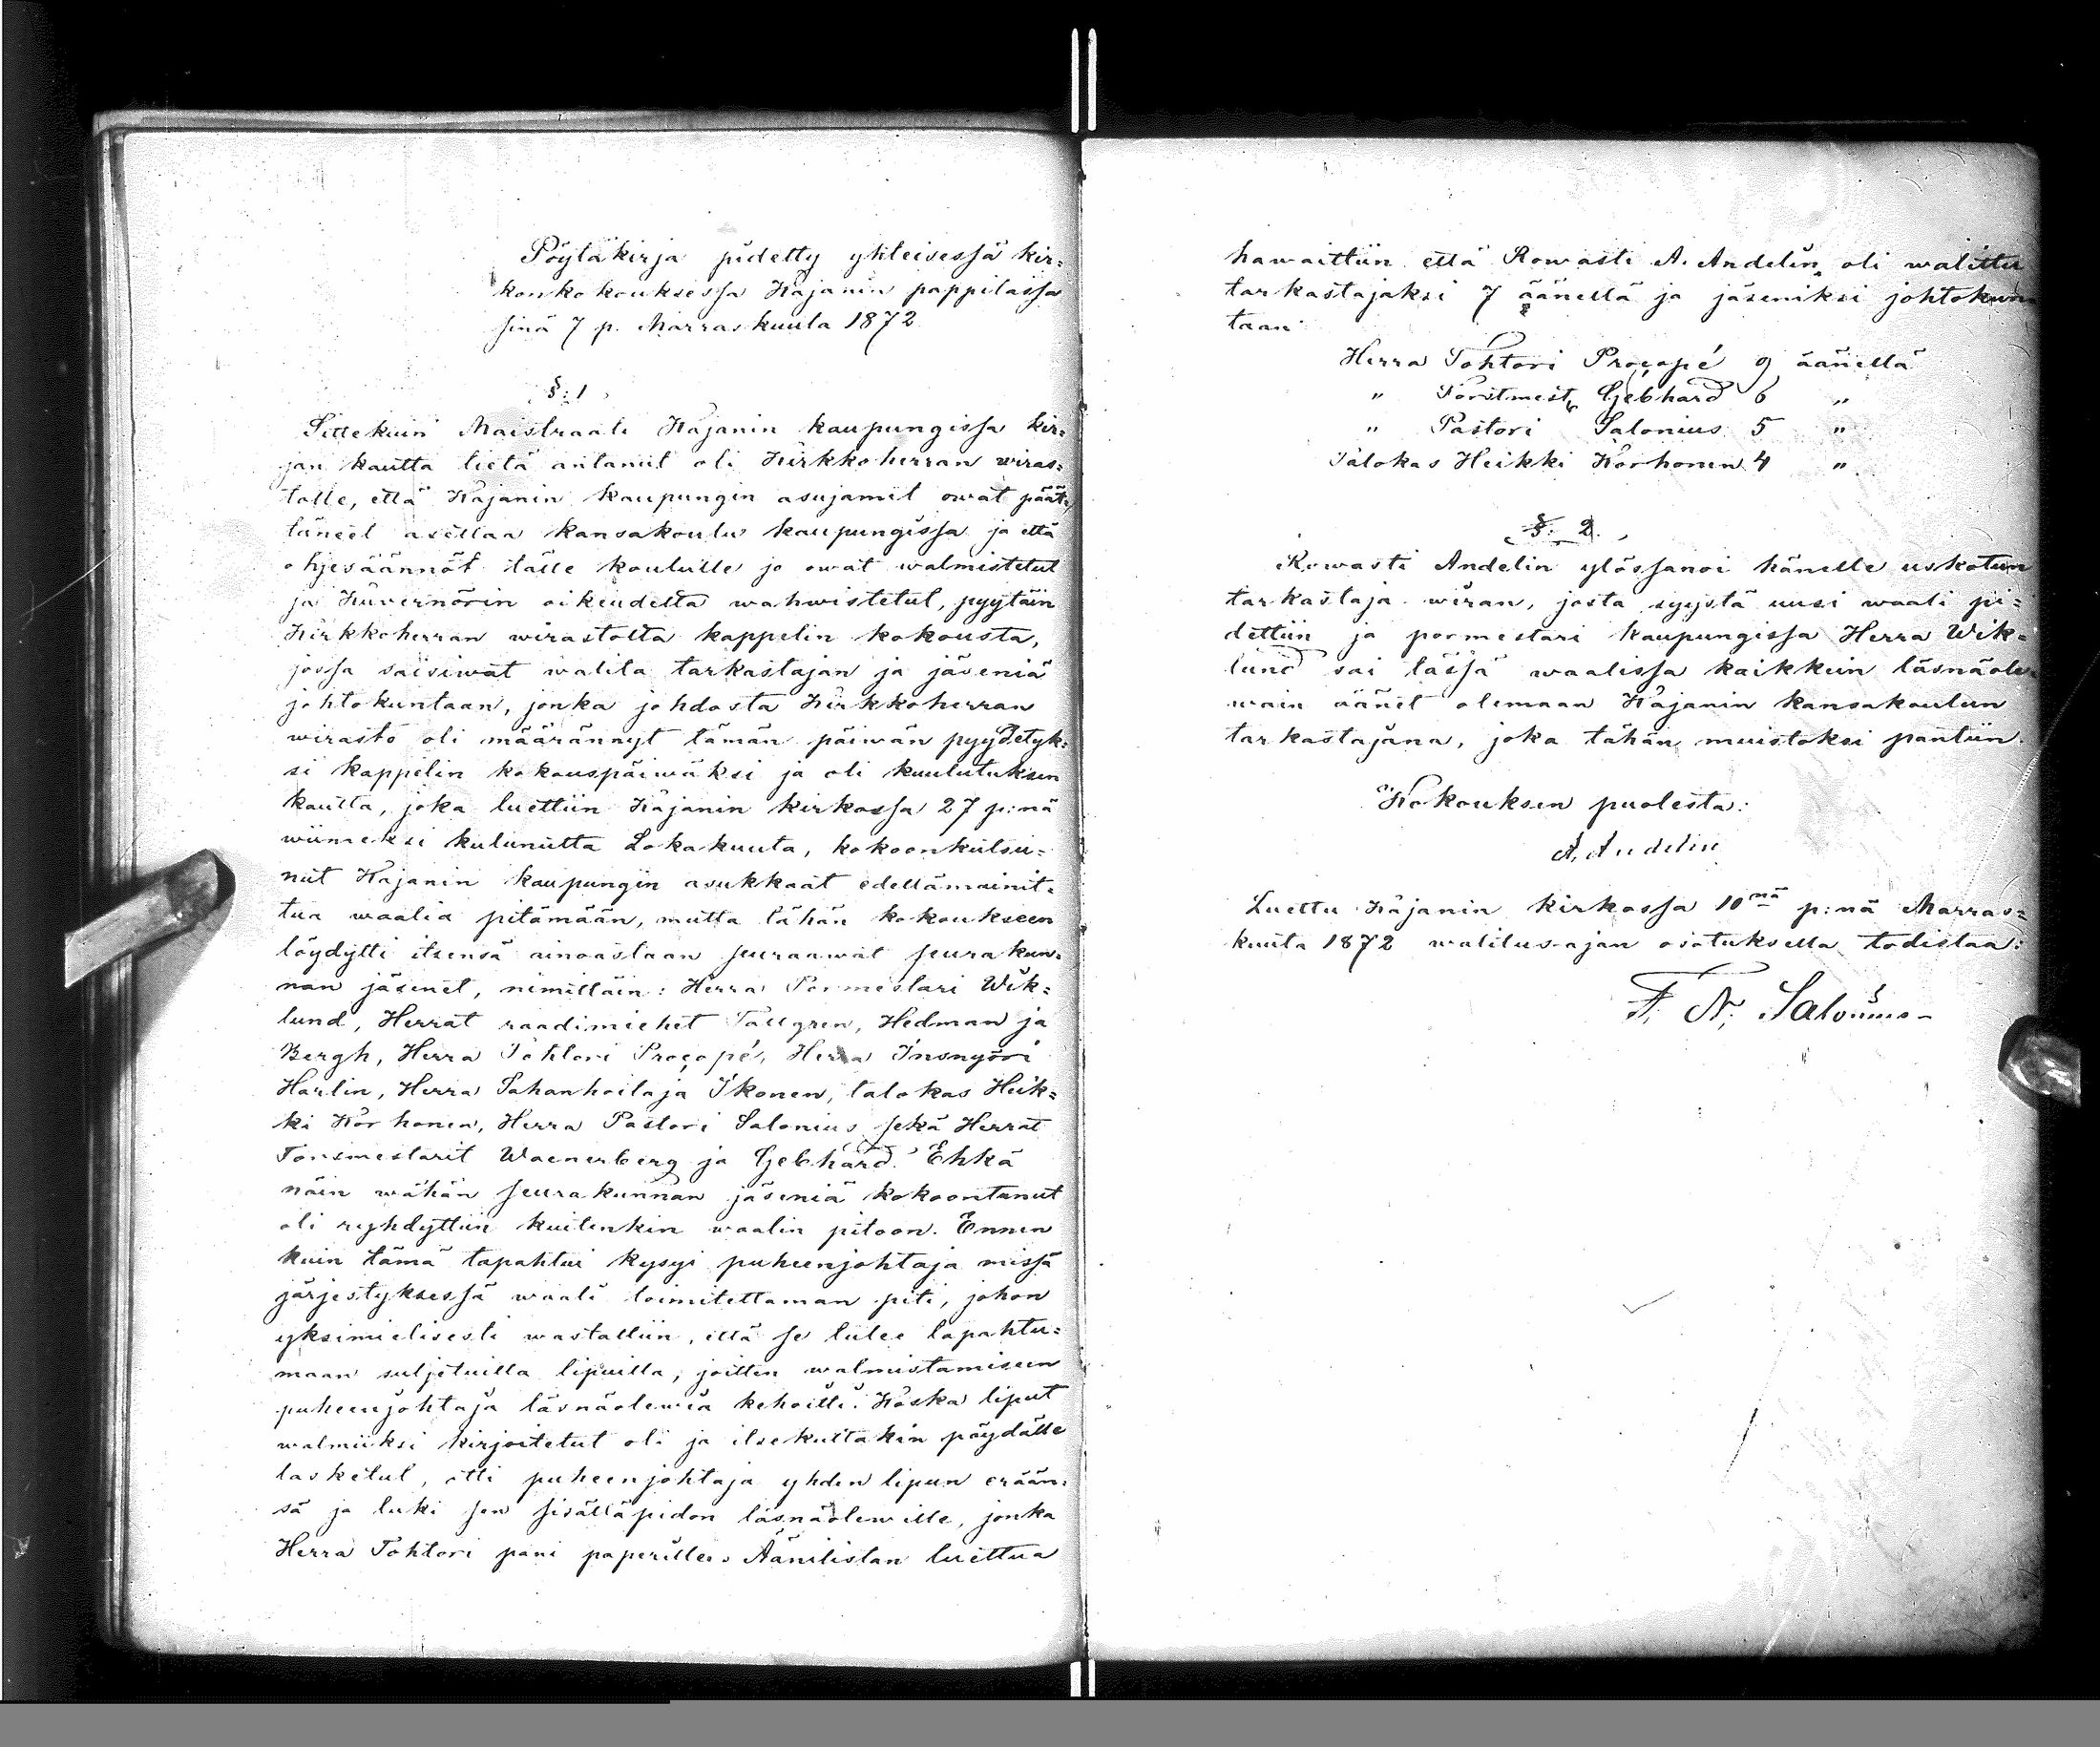 Pöytäkirja pidetty yhteisessä kir=
konkokouksessa Kajanin pappilassa
sinä 7 p. Marraskuuta 1872
§: 1
Sittekuin Maistraati Kajanin kaupungissa kir=
jan kautta tietä antanut oli Kirkkoherran wiras=
tolle, että Kajanin kaupungin asujamet owat päät=
täneet asettaa kansakoulu kaupungissa ja että
ohjesäännöt tälle koululle jo owat walmistetut
ja Kuvernörin oikeudelta wahwistetut, pyytäin
Kirkkoherran wirastolta kappelin kokousta,
jossa saisiwat walita tarkastajan ja jäseniä
johtokuntaan, jonka johdosta Kirkkoherran
wirasto oli määrännyt tämän päiwän pyydetyk=
si kappelin kokouspäiwäksi ja oli kuulutuksen
kautta, joka luettiin Kajanin kirkossa 27 p:nä
wiimeksi kulunutta Lokakuuta, kokoonkutsu=
nut Kajanin kaupungin asukkaat edellämainit=
tua waalia pitämään, mutta tähän kokoukseen
löydytti itsensä ainoastaan seuraawat seurakun=
nan jäsenet, nimittäin: Herra Pormestari Wik=
lund, Herrat raadimiehet Tallgren, Hedman ja
Bergh, Herra Tohtori Proçopé, Herra Insnyöri
Harlin, Herra Sahanhoitaja Ikonen, talokas Heik=
ki Korhonen, Herra Pastori Salonius sekä Herrat
Forsmestarit Waenerberg ja Gebhard. Ehkä
näin wähän seurakunnan jäseniä kokoontunut
oli ryhdyttiin kuitenkin waalin pitoon. Ennen
kuin tämä tapahtui kysyi puheenjohtaja missä
järjestyksessä waali toimitettaman piti, johon
yksimielisesti wastattiin, että se tulee tapahtu=
maan suljetuilla lipuilla, joitten walmistamiseen
puheenjohtaja läsnäolewia kehoitti. Koska liput
walmiiksi kirjoitetut oli ja itsekultakin pöydälle
lasketut, otti puheenjohtaja yhden lipun erään=
sä ja luki sen sisälläpidon läsnäolewille, jonka
Herra Tohtori pani paperille. Äänilistan luettua
hawaittiin että Rowasti A. Andelin oli walittu
tarkastajaksi 7 äänellä ja jäseniksi johtokun=
taan
Herra Tohtori Proçopé 9 äänellä
" Forstmest. Gebhard 6 "
" Pastori Salonius 5 "
Talokas Heikki Korhonen 4 "
§: 2.
Rowasti Andelin ylössanoi hänelle uskotun
tarkastaja wiran, josta syystä uusi waali pi=
dettiin ja pormestari kaupungissa Herra Wik=
lund sai tässä waalissa kaikkein läsnäole=
wain äänet olemaan Kajanin kansakoulun
tarkastajana, joka tähän muistoksi pantiin.
Kokouksen puolesta:
A. Andelin
Luettu Kajanin kirkossa 10nä p:nä Marras=
kuuta 1872 walitus-ajan osotuksella todistaa:
F. N. Salonius